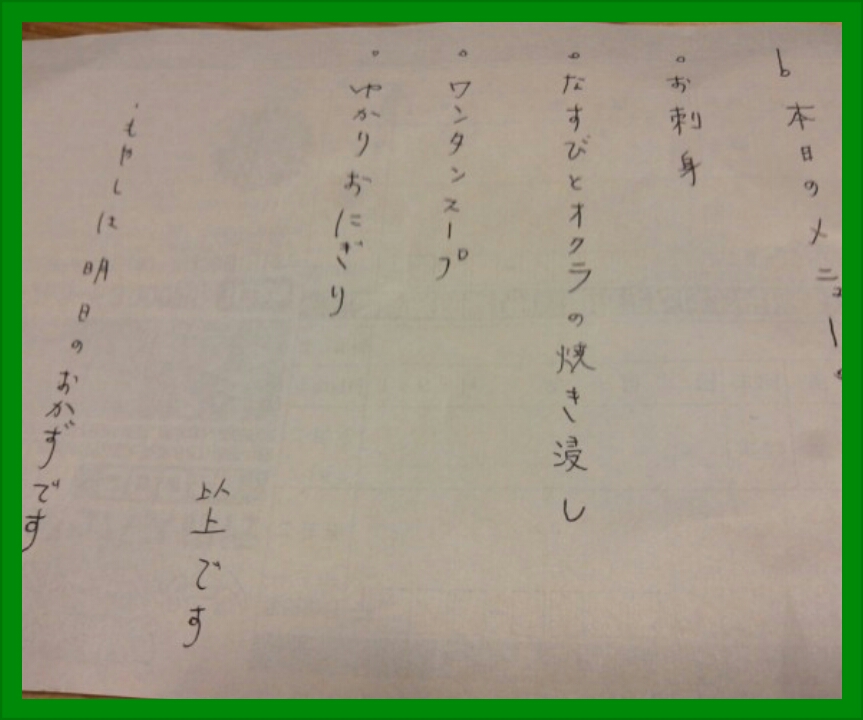 ♭本日のメニュー。
。お刺身
。なすびとオクラの焼き浸し
。ワンタンスープ
。ゆかりおにぎり
以上です
・もやしは明日のおかずです